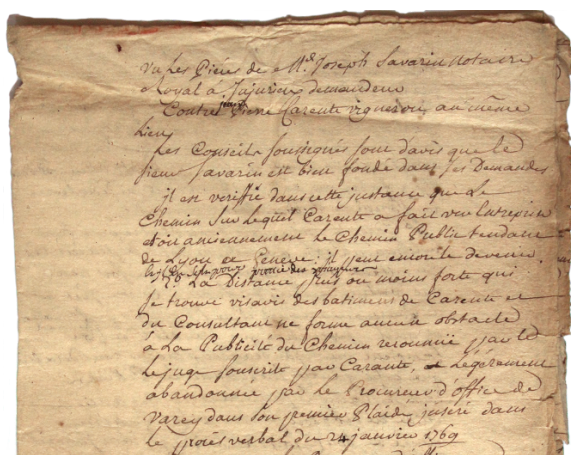 Vu Les Pieces de Me. Joseph Savarin Notaire
Royal a Jujurieux demandeur
Contre sieur Pierre Carente vigneron au même
Lieu
Les Conseils soussignés sont davis que le
sieur Savarin est bien fondé dans ses Demandes
il est veriffié dans cette instance que Le
Chemin Sur Lequel Carente a fait une Entreprise
est ou anciennement le Chemin Public tendant
de Lyon a Geneve; il peut encor le devenir.
La Distance plus ou moins forte qui
se trouve visavis des batimens de Carente et
du Consultant ne forme aucun obstacle
à La Publicité du Chemin reconnüe par le
Juge souscrit par Carente, Légérement
abandonnée par le Procureur d'office de
Varey dans son premier Plaidé inséré dans
le procès verbal du 24 janvier 1769